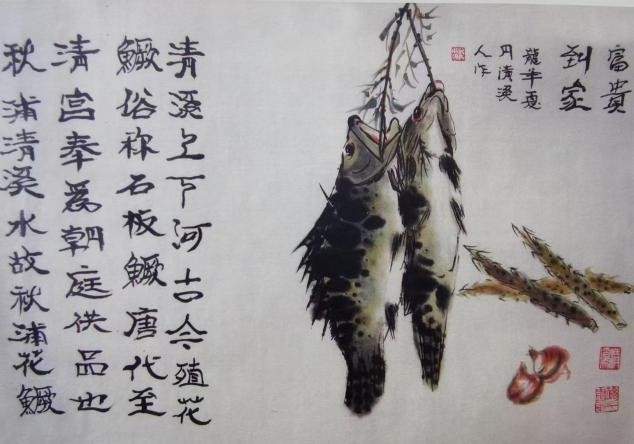 富貴
到家
龍年夏
月清溪
人作
青溪上下河古今殖花
鱖俗称石板鱖唐代至
清宫奉為朝庭供品也
秋浦清溪水故秋浦花鱖